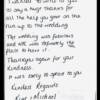 to say a huge thanks for
all the help you gave on the
run up to the wedding.
The wedding was fabulous
and was definitely the
place to have it!
Thankyou again for your
kindness
it was lovely to speak to you
Kindest Regards